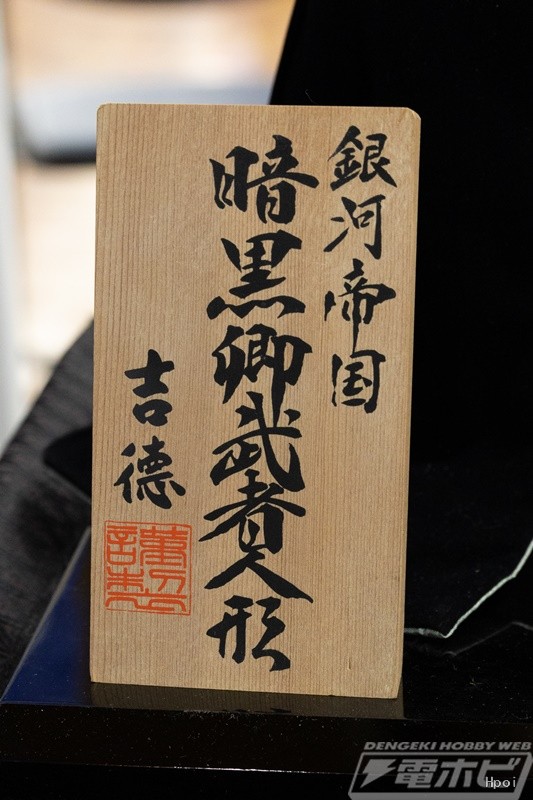 銀河帝国
暗黒卿武者人形
吉德
DENGEKI HOBBY WEB
電ホビ
Hpoi